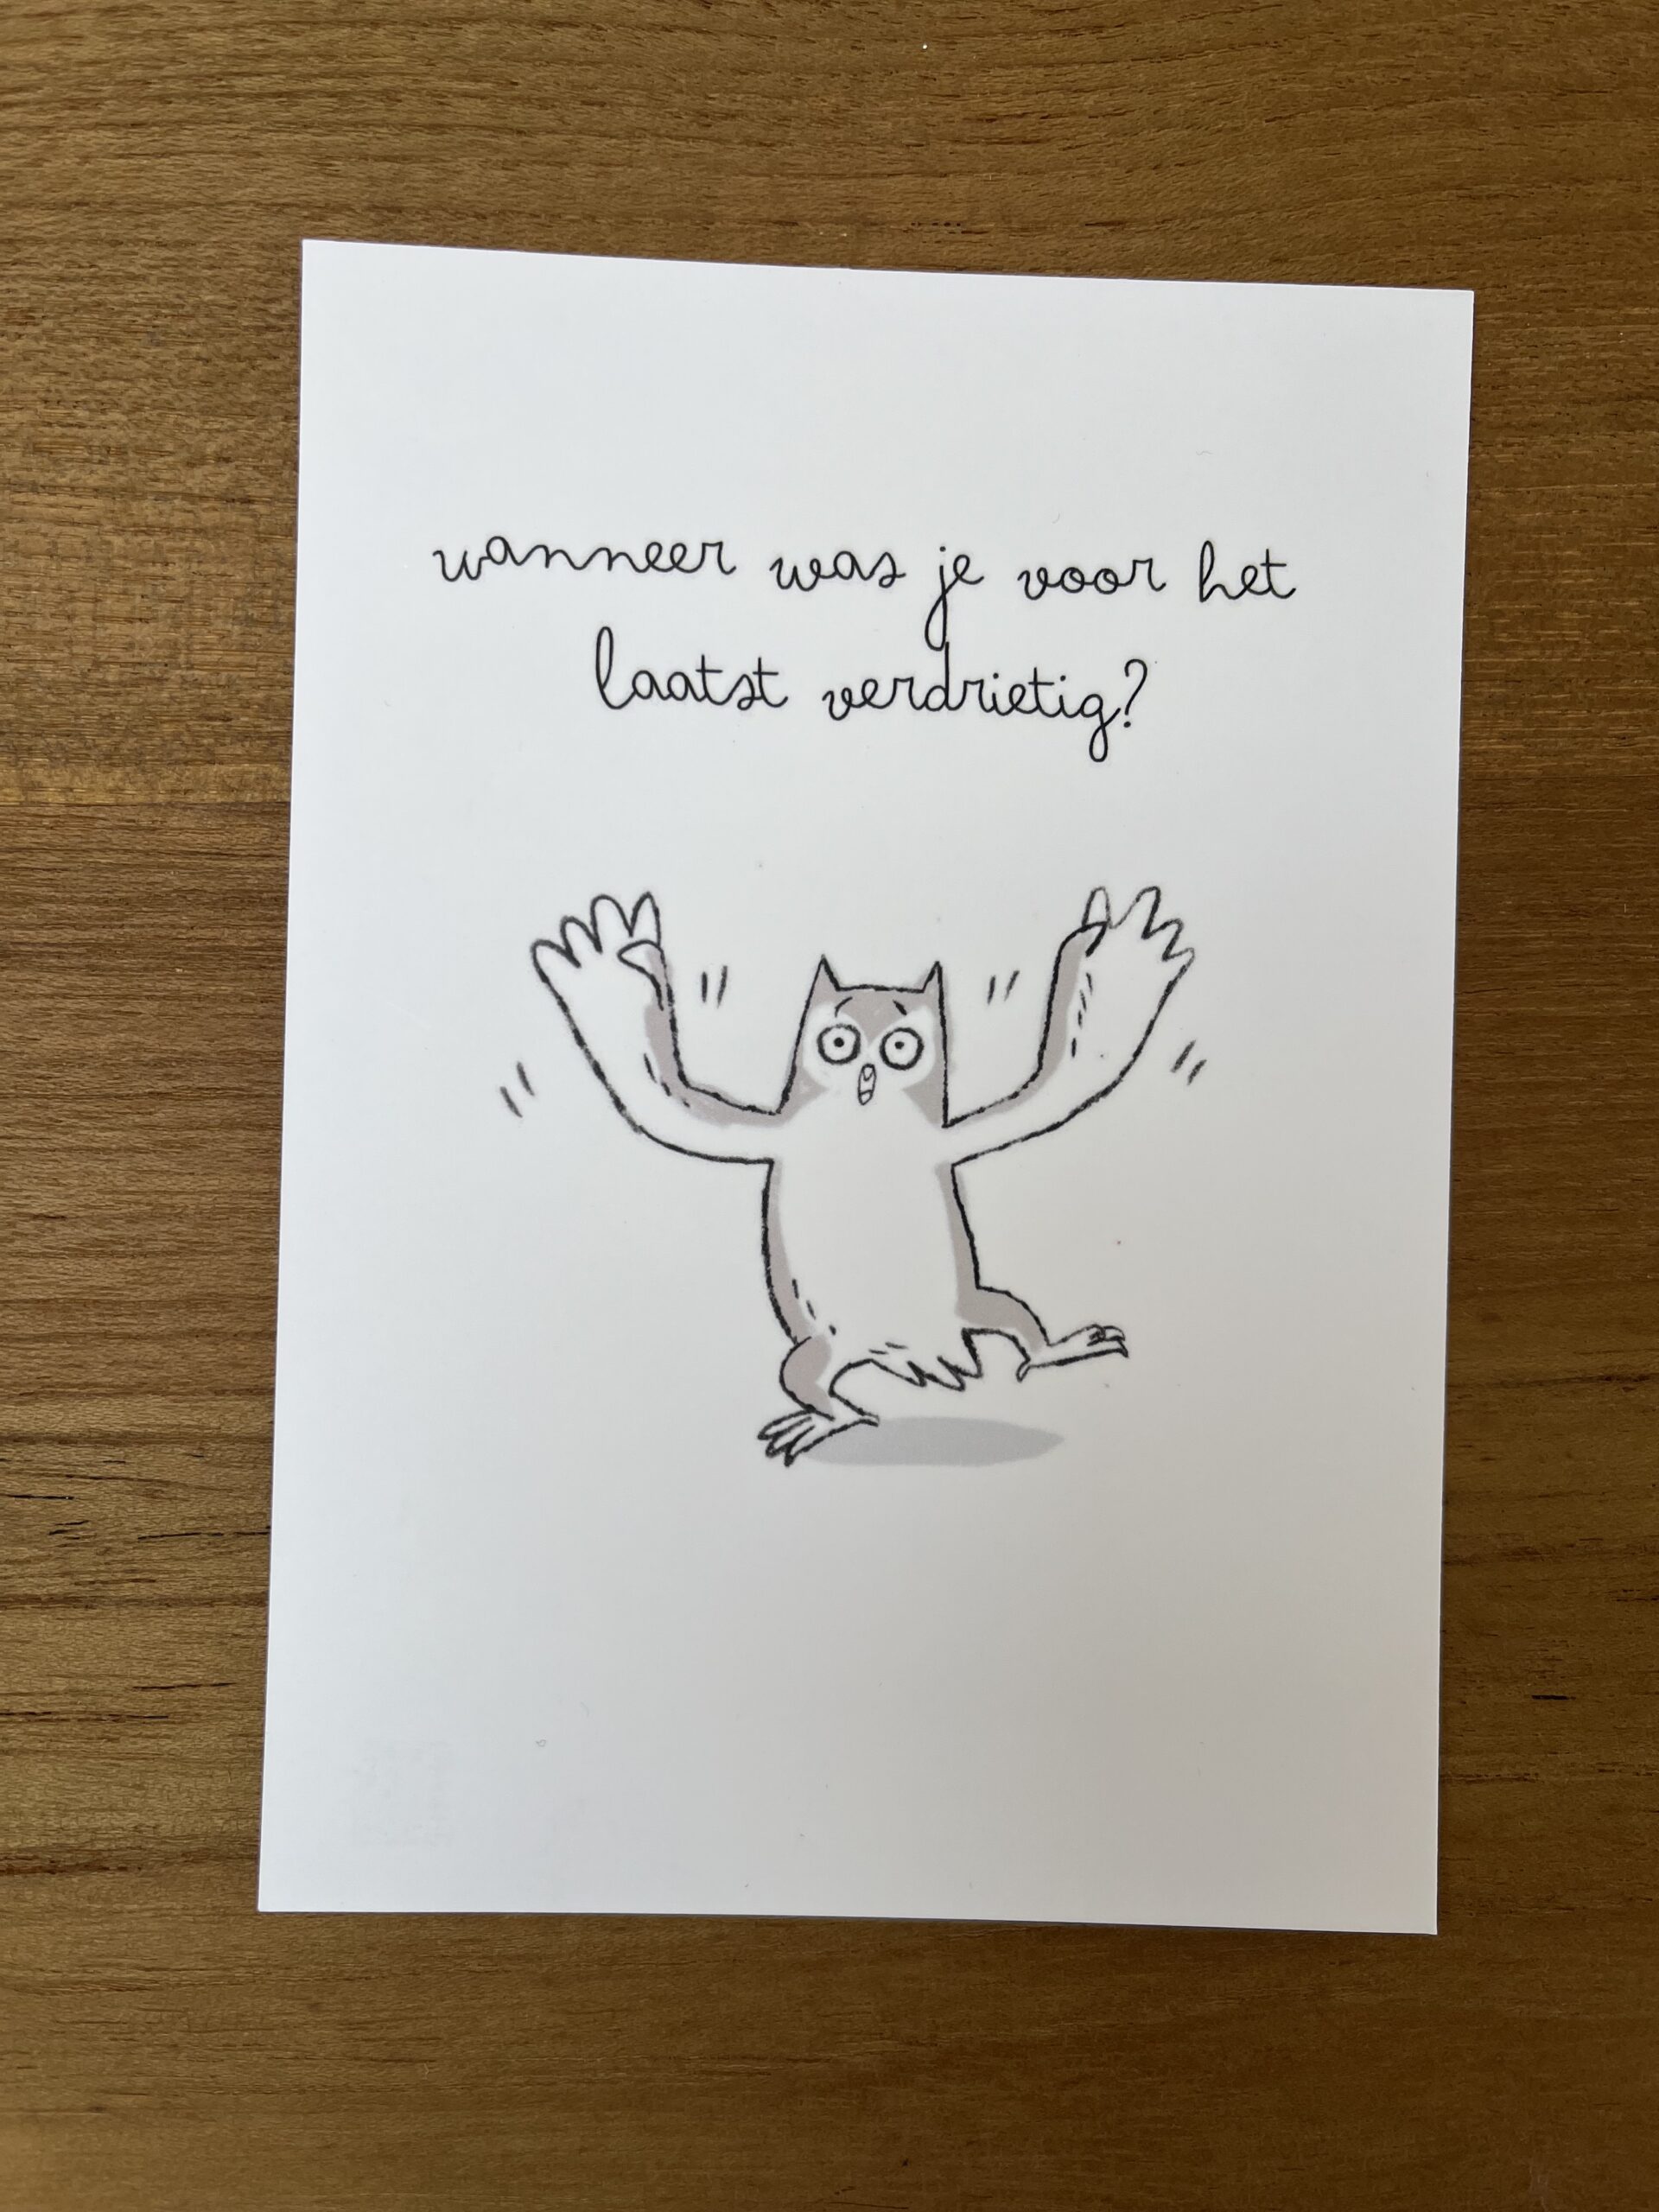 wanneer was je voor het
laatst verdrietig?